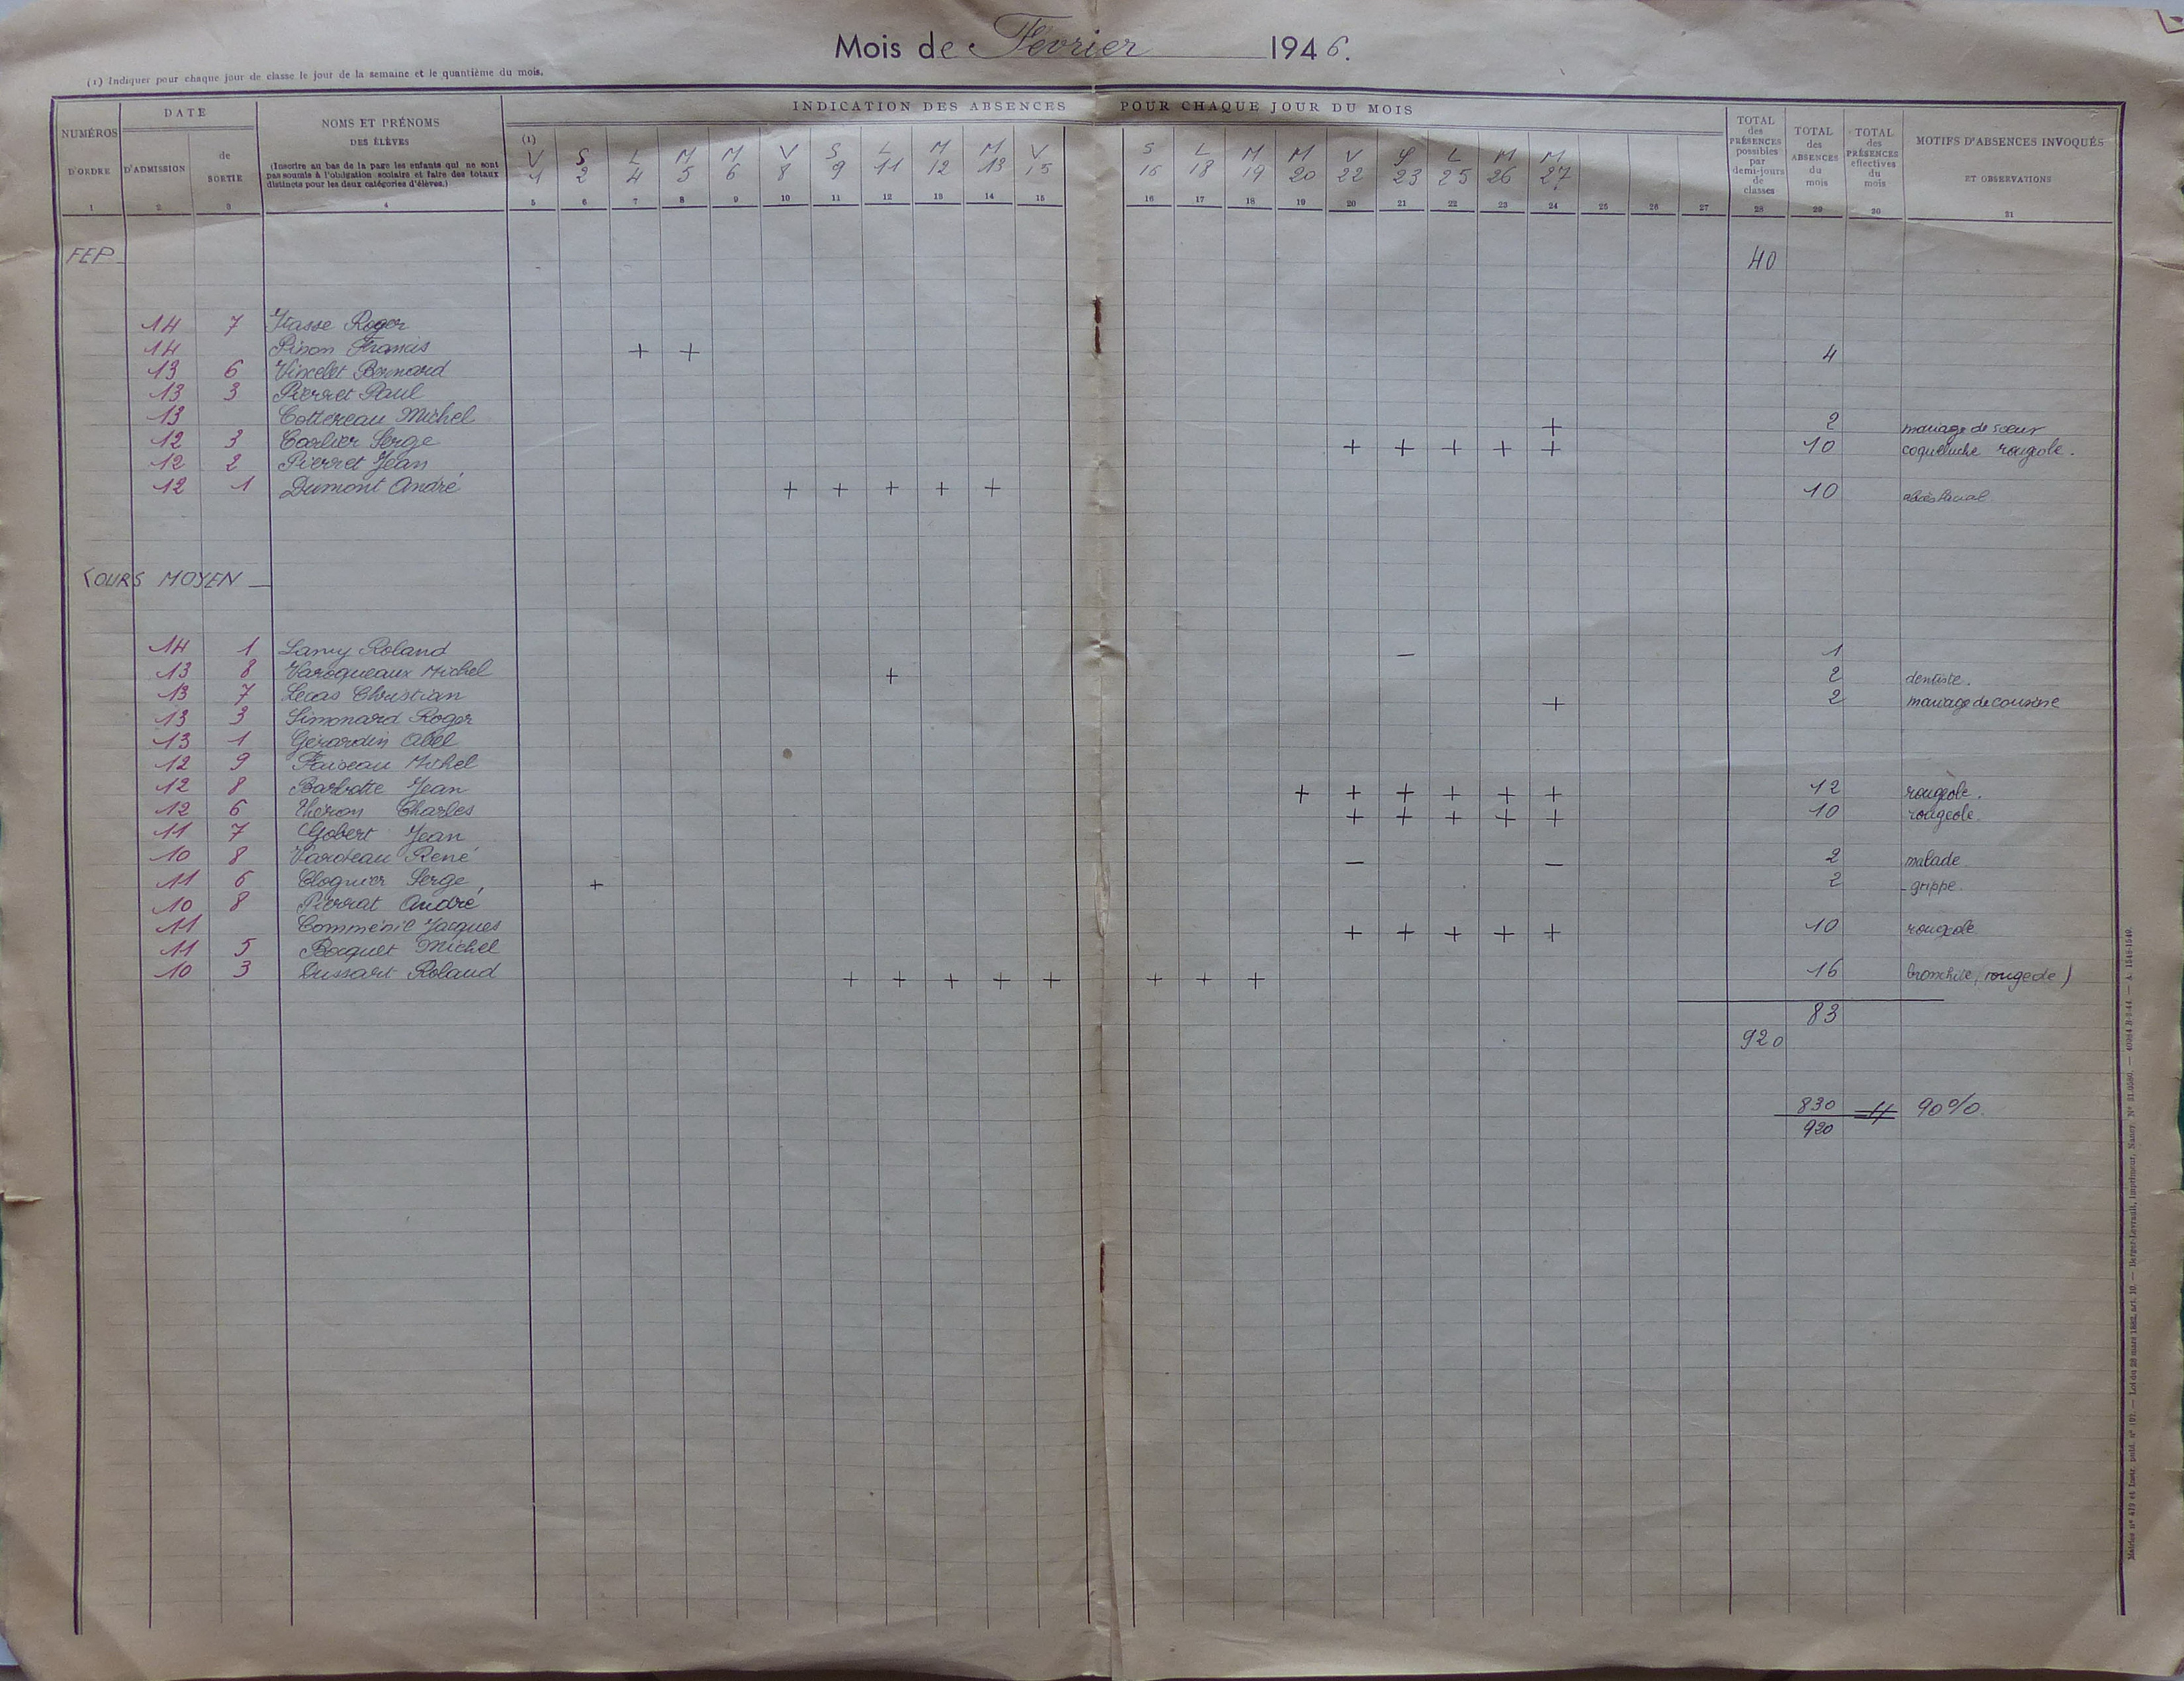 Mois de Février 1946.
(1) Indiquer pour chaque jour de classe le jour de la semaine et le quantième du mois.
NUMÉROS D'ORDRE
DATE
D'ADMISSION
de SORTIE
NOMS ET PRÉNOMS
DES ÉLÈVES
(Inscrire au bas de la page les enfants qui ne sont
pas soumis à l'obligation scolaire et faire des totaux
distincts pour les deux catégories d'élèves.)
INDICATION DES ABSENCES POUR CHAQUE JOUR DU MOIS
TOTAL des PRÉSENCES possibles par demi-jours de classes
TOTAL des ABSENCES du mois
TOTAL des PRÉSENCES effectives du mois
MOTIFS D'ABSENCES INVOQUÉS
ET OBSERVATIONS
(1)
V S L M M V S L M M V S L M M V S L M M
1 2 4 5 6 8 9 11 12 13 15 16 18 19 20 22 23 25 26 27
1 2 3 4 5 6 7 8 9 10 11 12 13 14 15 16 17 18 19 20 21 22 23 24 25 26 27 28 29 30 31
FEP 40
14 7 Roger
14 Pinon Francis + + 4
13 6 Vincelet Bernard
13 3 Pierret Paul
13 Cottereau Michel + 2 mariage de sœur
12 3 Carlier Serge + + + + + 10 coqueluche rougeole.
12 2 Pierret Jean
12 1 Dumont André + + + + + 10
COURS MOYEN
14 1 Lamy Roland – 1
13 8 Varoqueaux Michel + 2 dentiste.
13 7 Lecas Christian + 2 mariage de cousine
13 3 Simonard Roger
13 1 Gérardin Abel
12 9 Michel
12 8 Barbotte Jean + + + + + + 12 rougeole.
12 6 Théron Charles + + + + + 10 rougeole.
11 7 Gobert Jean
10 8 René – – 2 malade
11 6 Cloquier Serge + 2 - grippe.
10 8 Pierrat André
11 Jacques + + + + + 10 rougeole
11 5 Bocquet Michel
10 3 Dussart Roland + + + + + + + + 16 bronchite (rougeole)
83
920
830
920
= 90%.